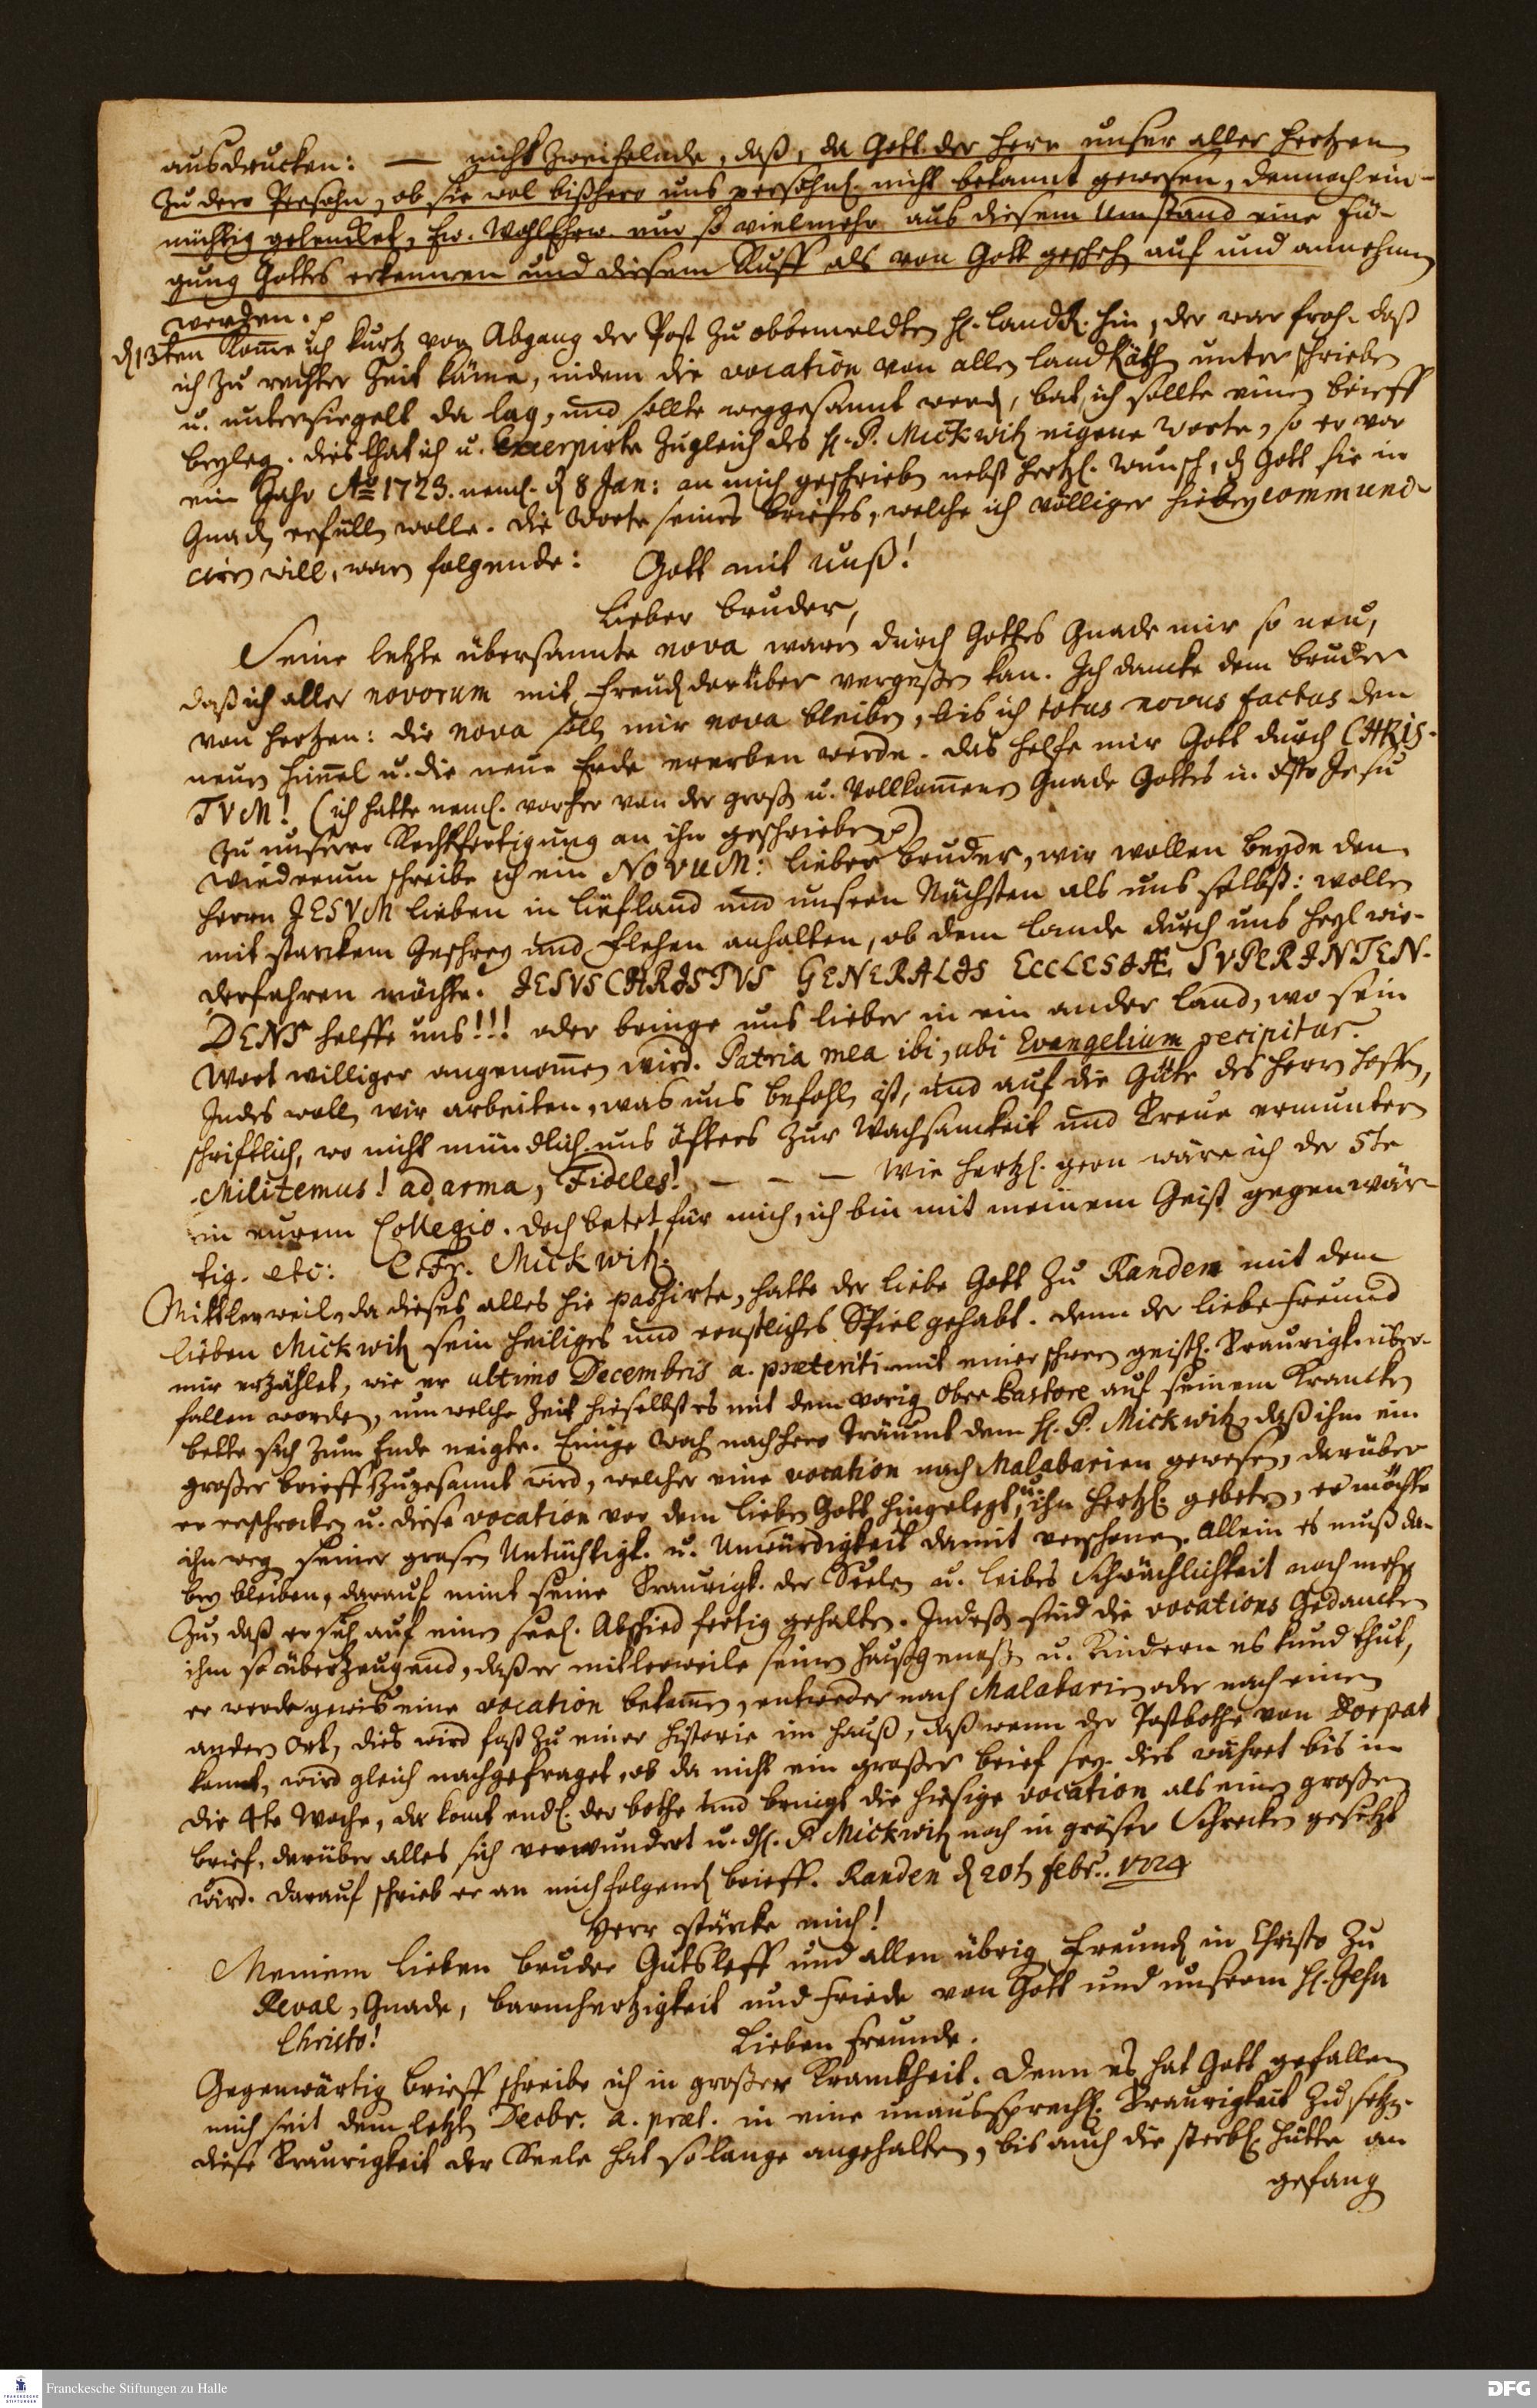 ausdrucken: — nicht zweifelnde, daß, da Gott der Herr unser aller Hertzen
zu dero Persohn, ob sie wol bißhero uns persöhnl. nicht bekannt gewesen, dennoch ein-
müthig gelencket, Ew. WohlEhrw. nur so vielmehr aus diesem Umstand eine Fü-
gung Gottes erkennen und diesem Ruff als von Gott gescheh. auf und annehmen
werden. p
d 13ten kom̄e ich kurtz vor Abgang der Post zu obbemeldten H. LandR. hin, der war froh, daß
ich zu rechter Zeit käme, indem die vocation von allen LandRäth. unterschrieben
u. untersiegelt da lag, und sollte weggesannt werd., bat, ich sollte einen brieff
beyleg. dies that ich u. Excerpirte zugleich des H. P. Mickwitz eigene Worte, so er vor
ein Jahr Aō 1723. neml. d 8 Jan: an mich geschrieben nebst Hertzl. Wunsch, d Gott sie in
Gnad. erfüllen wolle. die Worte seines briefes, welche ich völliger hiebey communi-
ciren will, waren folgende: Gott mit unß!
Lieber bruder,
Seine letzte übersannte nova waren durch Gottes Gnade mir so neu,
daß ich aller novorum mit Freud. darüber vergeßen kan. Ich dancke dem bruder
von Hertzen: die nova soll. mir nova bleiben, bis ich totus novus factus den
neuen Him̄el u. die neue Erde ererben werde. das helfe mir Gott durch CHRIS-
TVM! (ich hatte neml. vorher von der groß. u. vollkom̄enen Gnade Gottes in Xsto Jesu
zu unserer Rechtfertigung an ihn geschrieben p)
Wiederum schreibe ich ein NOVUM: lieber bruder, wir wollen beyde den
Herrn JESVM lieben in Liefland und unsern Nächsten als uns selbst: wollen
mit starckem Geschrey und Flehen anhalten, ob dem Lande durch uns Heyl wie-
derfahren möchte. JESVS CHRISTVS GENERALIS ECCLESIÆ SVPERINTEN-
DENS helffe uns!!! oder bringe uns lieber in ein ander Land, wo sein
Wort williger angenom̄en wird. Patria mea ibi, ubi Evangelium recipitur.
Indes woll. wir arbeiten, was uns befohl. ist, und auf die Güte des Herrn hoffen,
schriftlich, wo nicht mündlich uns öfters zur Wachsamkeit und Treue ermuntern
Militemus! ad arma, Fideles! — — — Wie hertzl. gern wäre ich der 5te
in eurem Collegio. doch betet für mich, ich bin mit meinem Geist gegenwär-
tig. etc: C. Fr. Mickwitz.
Mittlerweile, da dieses alles hie passirte, hatte der liebe Gott zu Randen mit dem
lieben Mickwitz sein heiliges und ernstliches Spiel gehabt. denn der liebe Freund
mir erzählet, wie er ultimo Decembris a. præteriti mit einer schwren geistl. Traurigk. über-
fallen worden, um welche Zeit hieselbst es mit dem vorig. Ober Pastore auf seinem Krancken
bette sich zum Ende neigte. Einige Woch. nachhero träumt dem H. P. Mickwitz, daß ihm ein
großer brieff zugesannt wird, welcher eine vocation nach Malabarien gewesen, darüber
er erschrocken u. diese vocation vor dem lieben Gott hingelegt, u. ihn hertzl. gebeten, er möchte
ihn weg. seiner grosen Untüchtigk. u. Unwürdigkeit damit verschonen. Allein es muß da-
bey bleiben, darauf nimt seine Traurigk. der Seelen u. Leibes Schwächlichkeit noch mehr
zu, daß er sich auf einen seel. Abschied fertig gehalten. Indeß sind die vocations Gedancken
ihm so überzeugend, daß er mitlerweile seinen Haußgenoß. u. Kindern es kund thut,
er werde gewis eine vocation bekom̄en, entweder nach Malabarien oder nach einen
andern Ort, dies wird fast zu einer Historie im Hauß, daß wenn der Postbothe von Dorpat
komt, wird gleich nachgefraget, ob da nicht ein großer brief sey. dies währet bis in
die 4te Woche, da komt endl. der bothe und bringt die hiesige vocation als einen großen
brief, darüber alles sich verwundert u. d H. P Mickwitz noch in gröser Schrecken gesetzt
wird. darauf schrieb er an mich folgend. brieff. Randen d 20t. Febr. 1724
Herr stärke mich!
Meinem lieben bruder Gutsleff und allen übrig. Freund. in Christo zu
Reval, Gnade, barmhertzigkeit und Friede von Gott und unserm H. Jesu
Christo!
Lieben Freunde.
Gegenwärtig brieff schreibe ich in großer Kranckheit. Denn es hat Gott gefallen
mich seit dem letzt. Decbr. a. præt. in eine unaussprechl. Traurigkeit zu setzen.
diese Traurigkeit der Seele hat so lange angehalten, bis auch die sterbl. Hütte an
gefang
Franckesche Stiftungen zu Halle
FRANCKESCHE STIFTUNGEN
DFG